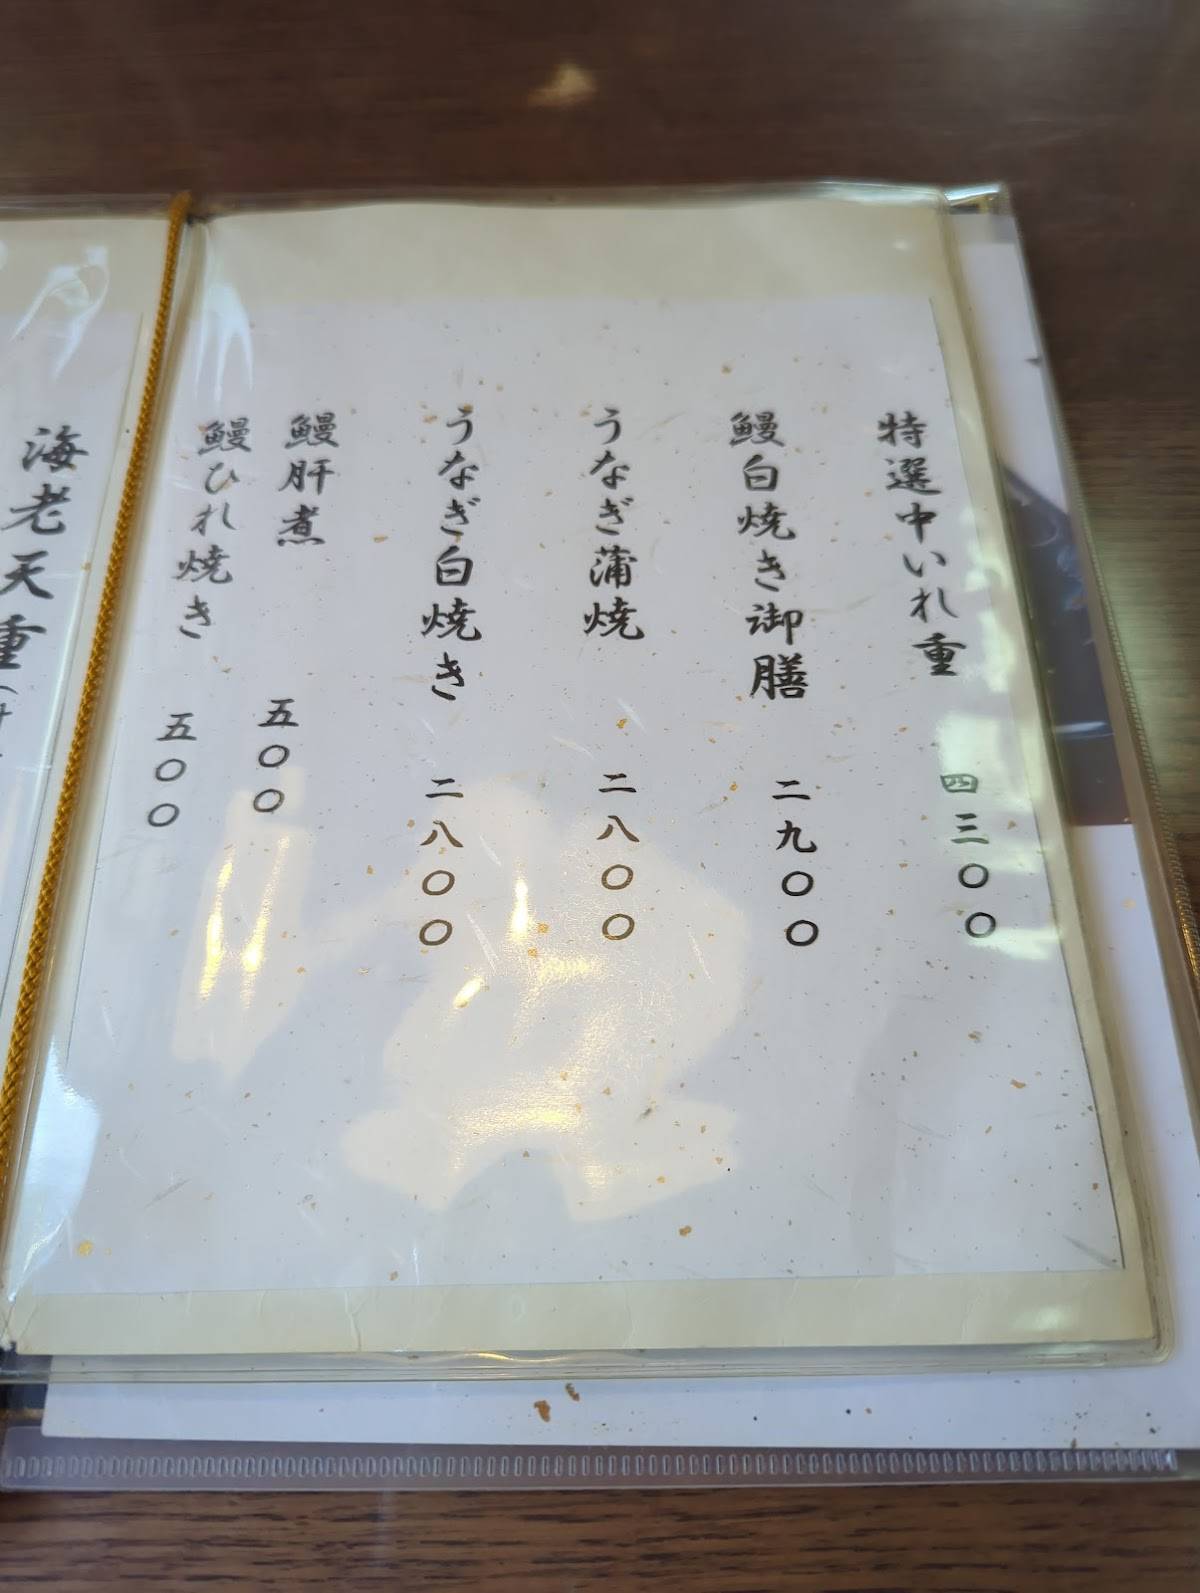 特選中いれ重 四三〇〇
鰻白焼き御膳 二九〇〇
うなぎ蒲焼 二八〇〇
うなぎ白焼き 二八〇〇
鰻肝煮 五〇〇
鰻ひれ焼き 五〇〇
海老天重